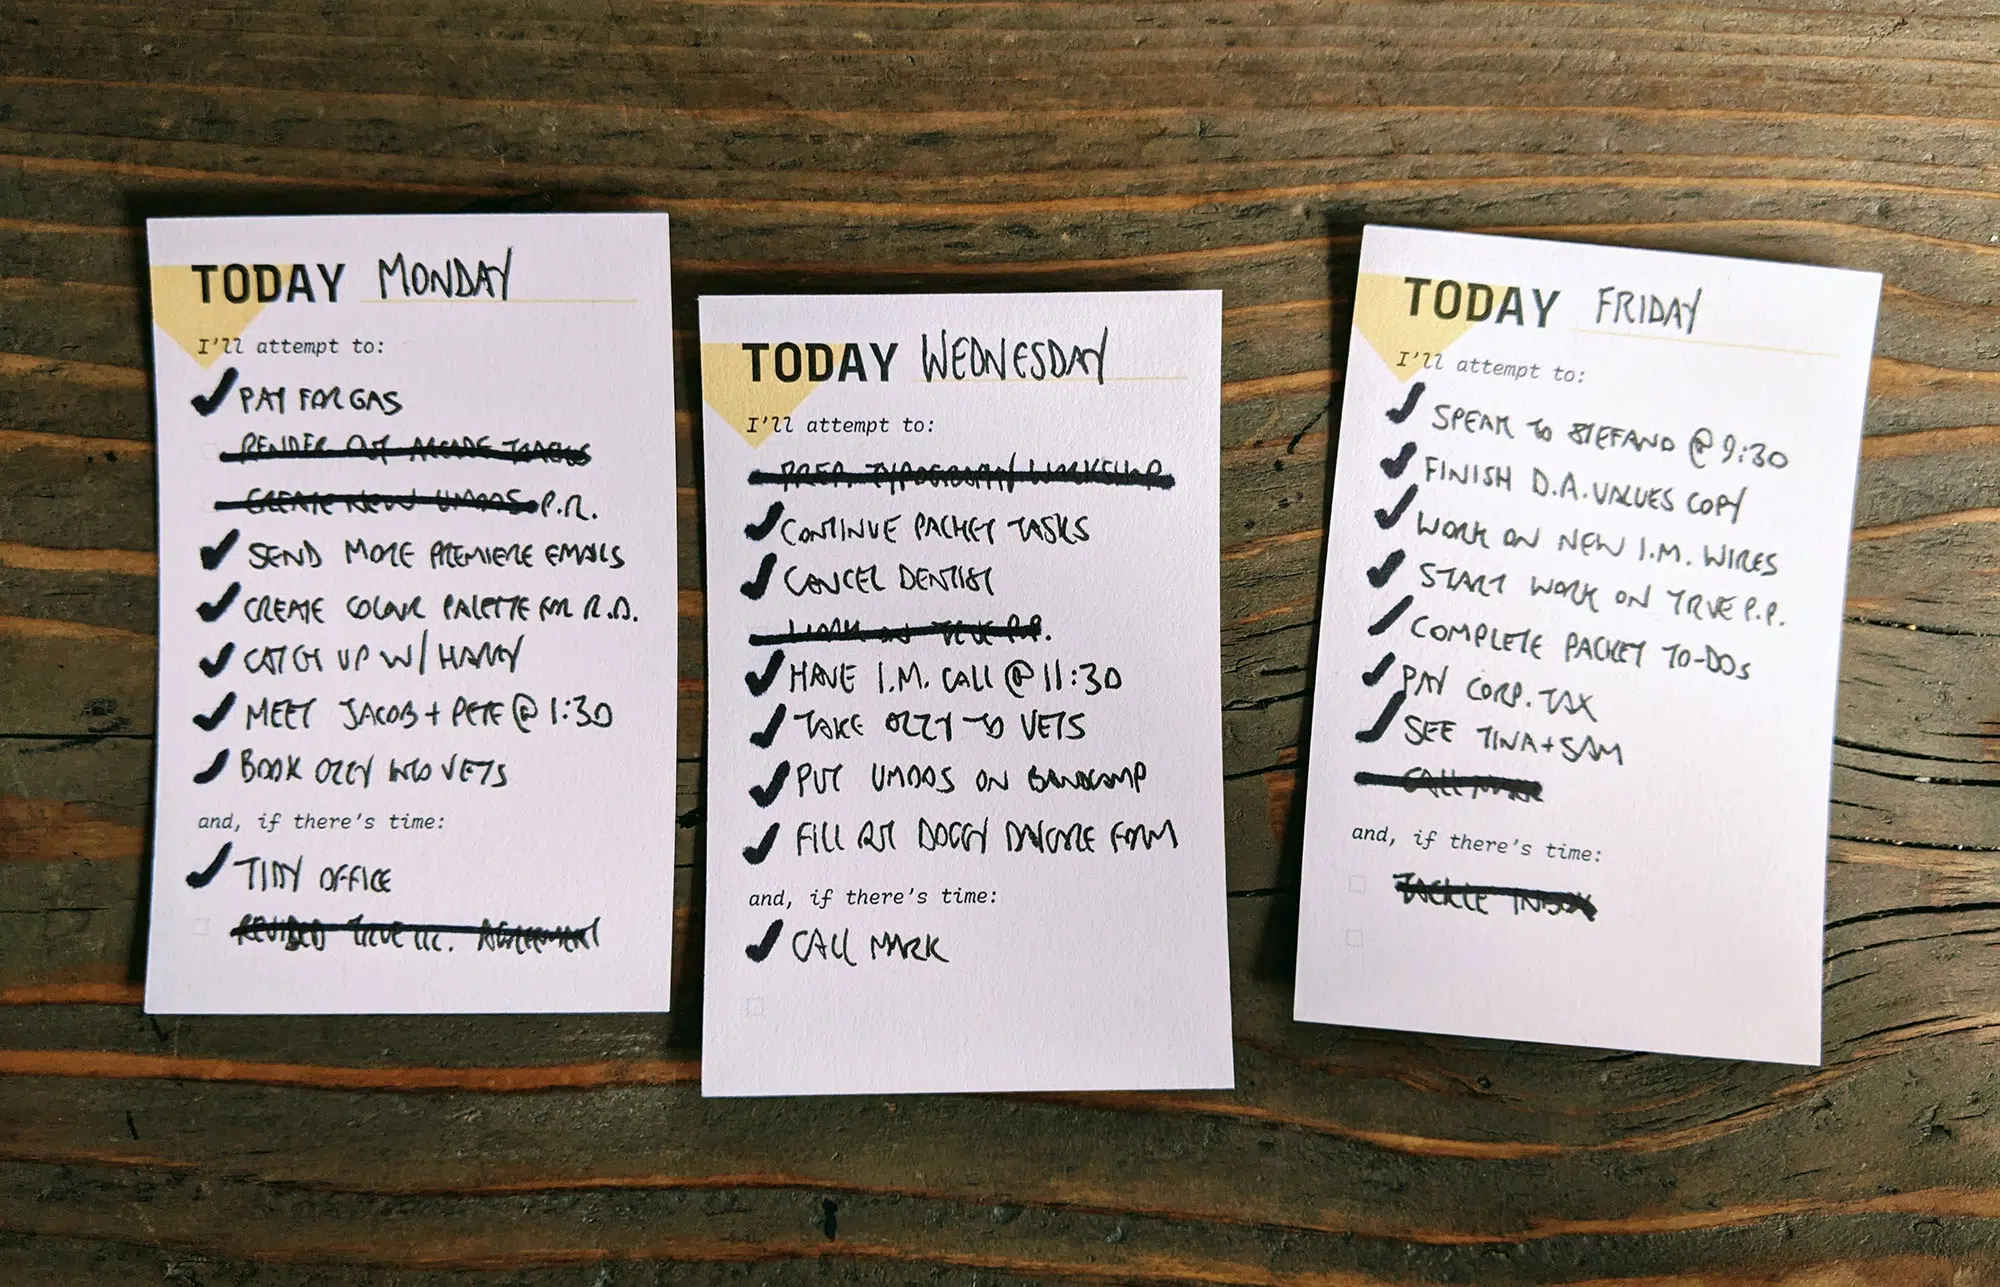 TODAY MONDAY
I'll attempt to:
PAY FOR GAS
RENDER OUT ARCADE TRACKS
CREATE NEW UMDOS P.R.
SEND MORE PREMIERE EMAILS
CREATE COLOUR PALETTE FOR R.D.
CATCH UP W/ HARRY
MEET JACOB + PETE @ 1:30
BOOK OZZY INTO VETS
and, if there's time:
TIDY OFFICE
REVISED TRUE AGREEMENT
TODAY WEDNESDAY
I'll attempt to:
PREP. TYPOGRAPHY WORKSHOP
CONTINUE PACKET TASKS
CANCEL DENTIST
WORK ON TRUE P.P.
HAVE I.M. CALL @ 11:30
TAKE OZZY TO VETS
PUT UMDOS ON BANDCAMP
FILL OUT DOGGY DAYCARE FORM
and, if there's time:
CALL MARK
TODAY FRIDAY
I'll attempt to:
SPEAK TO STEFANO @ 9:30
FINISH D.A. VALUES COPY
WORK ON NEW I.M. WIRES
START WORK ON TRUE P.P.
COMPLETE PACKET TO-DOS
PAY CORP. TAX
SEE TINA + SAM
CALL MARK
and, if there's time:
TACKLE INBOX